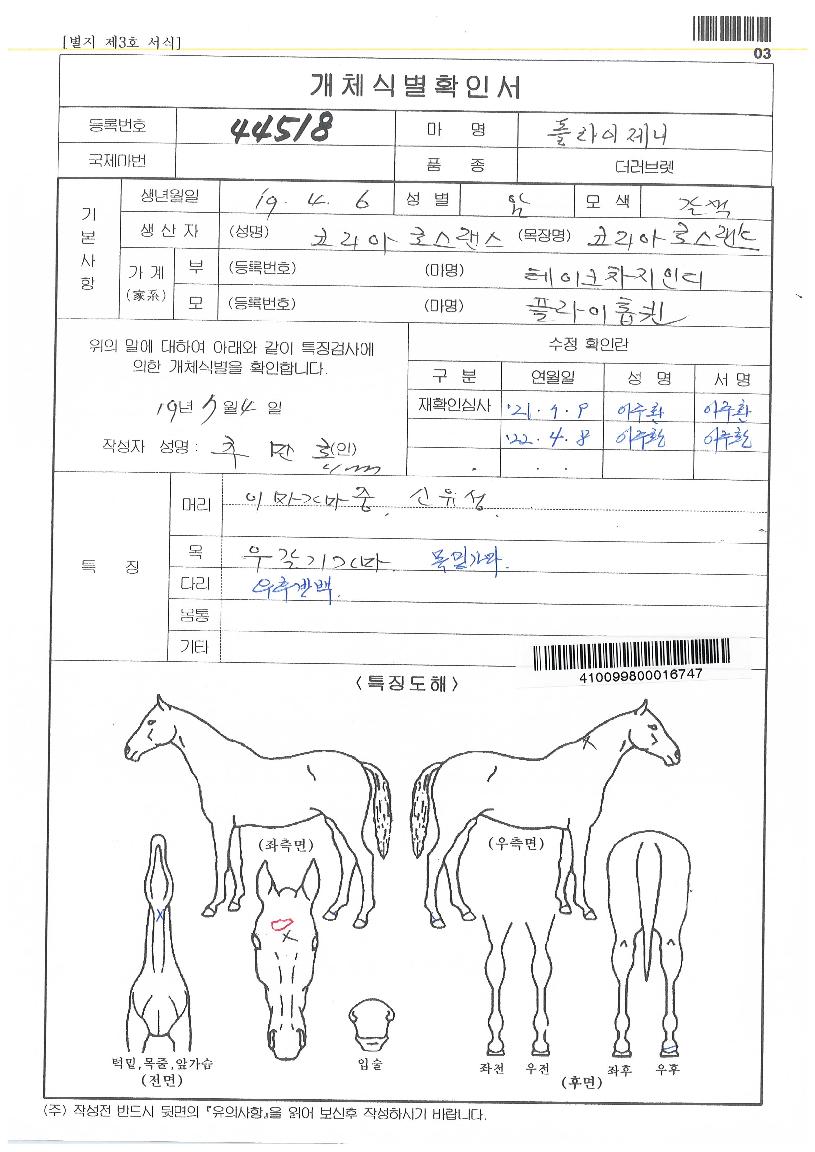 [별지 제3호 서식]
03
개체식별확인서
등록번호 44518 마 명 플라이제니
국제마번 품 종 더러브렛
기본사항
생년월일 19. 4. 6 성 별 암 모 색 갈색
생 산 자 (성명) 코리아 로스랜스 (목장명) 코리아 로스랜드
가 계 (家系) 부 (등록번호) (마명) 테이크차지인디
모 (등록번호) (마명) 플라이홉킨
위의 말에 대하여 아래와 같이 특징검사에
의한 개체식별을 확인합니다.
19년 7월 4 일
작성자 성명 : (인)
수정 확인란
구 분 연월일 성 명 서 명
재확인심사 '21. 9. 9 이주환 이주환
'22. 4. 8 이주환 이주환
. . .
특 징
머리 이마가마중, 신유성.
목 우갈기가마. 목밑가마.
다리 우후반백.
몸통
기타
410099800016747
<특징도해>
(좌측면) (우측면)
턱밑,목줄,앞가슴
(전면)
입술
좌전 우전 좌후 우후
(후면)
(주) 작성전 반드시 뒷면의 『유의사항』을 읽어 보신후 작성하시기 바랍니다.